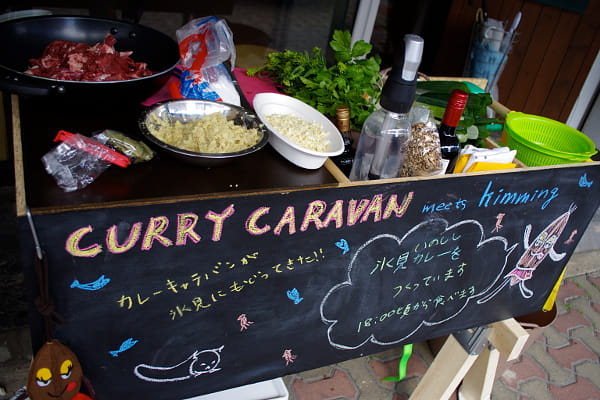 CURRY CARAVAN meets himming
カレーキャラバンが
氷見にもどってきた!!
氷見いのしし
カレーを
つくっています
18:00頃から食べます